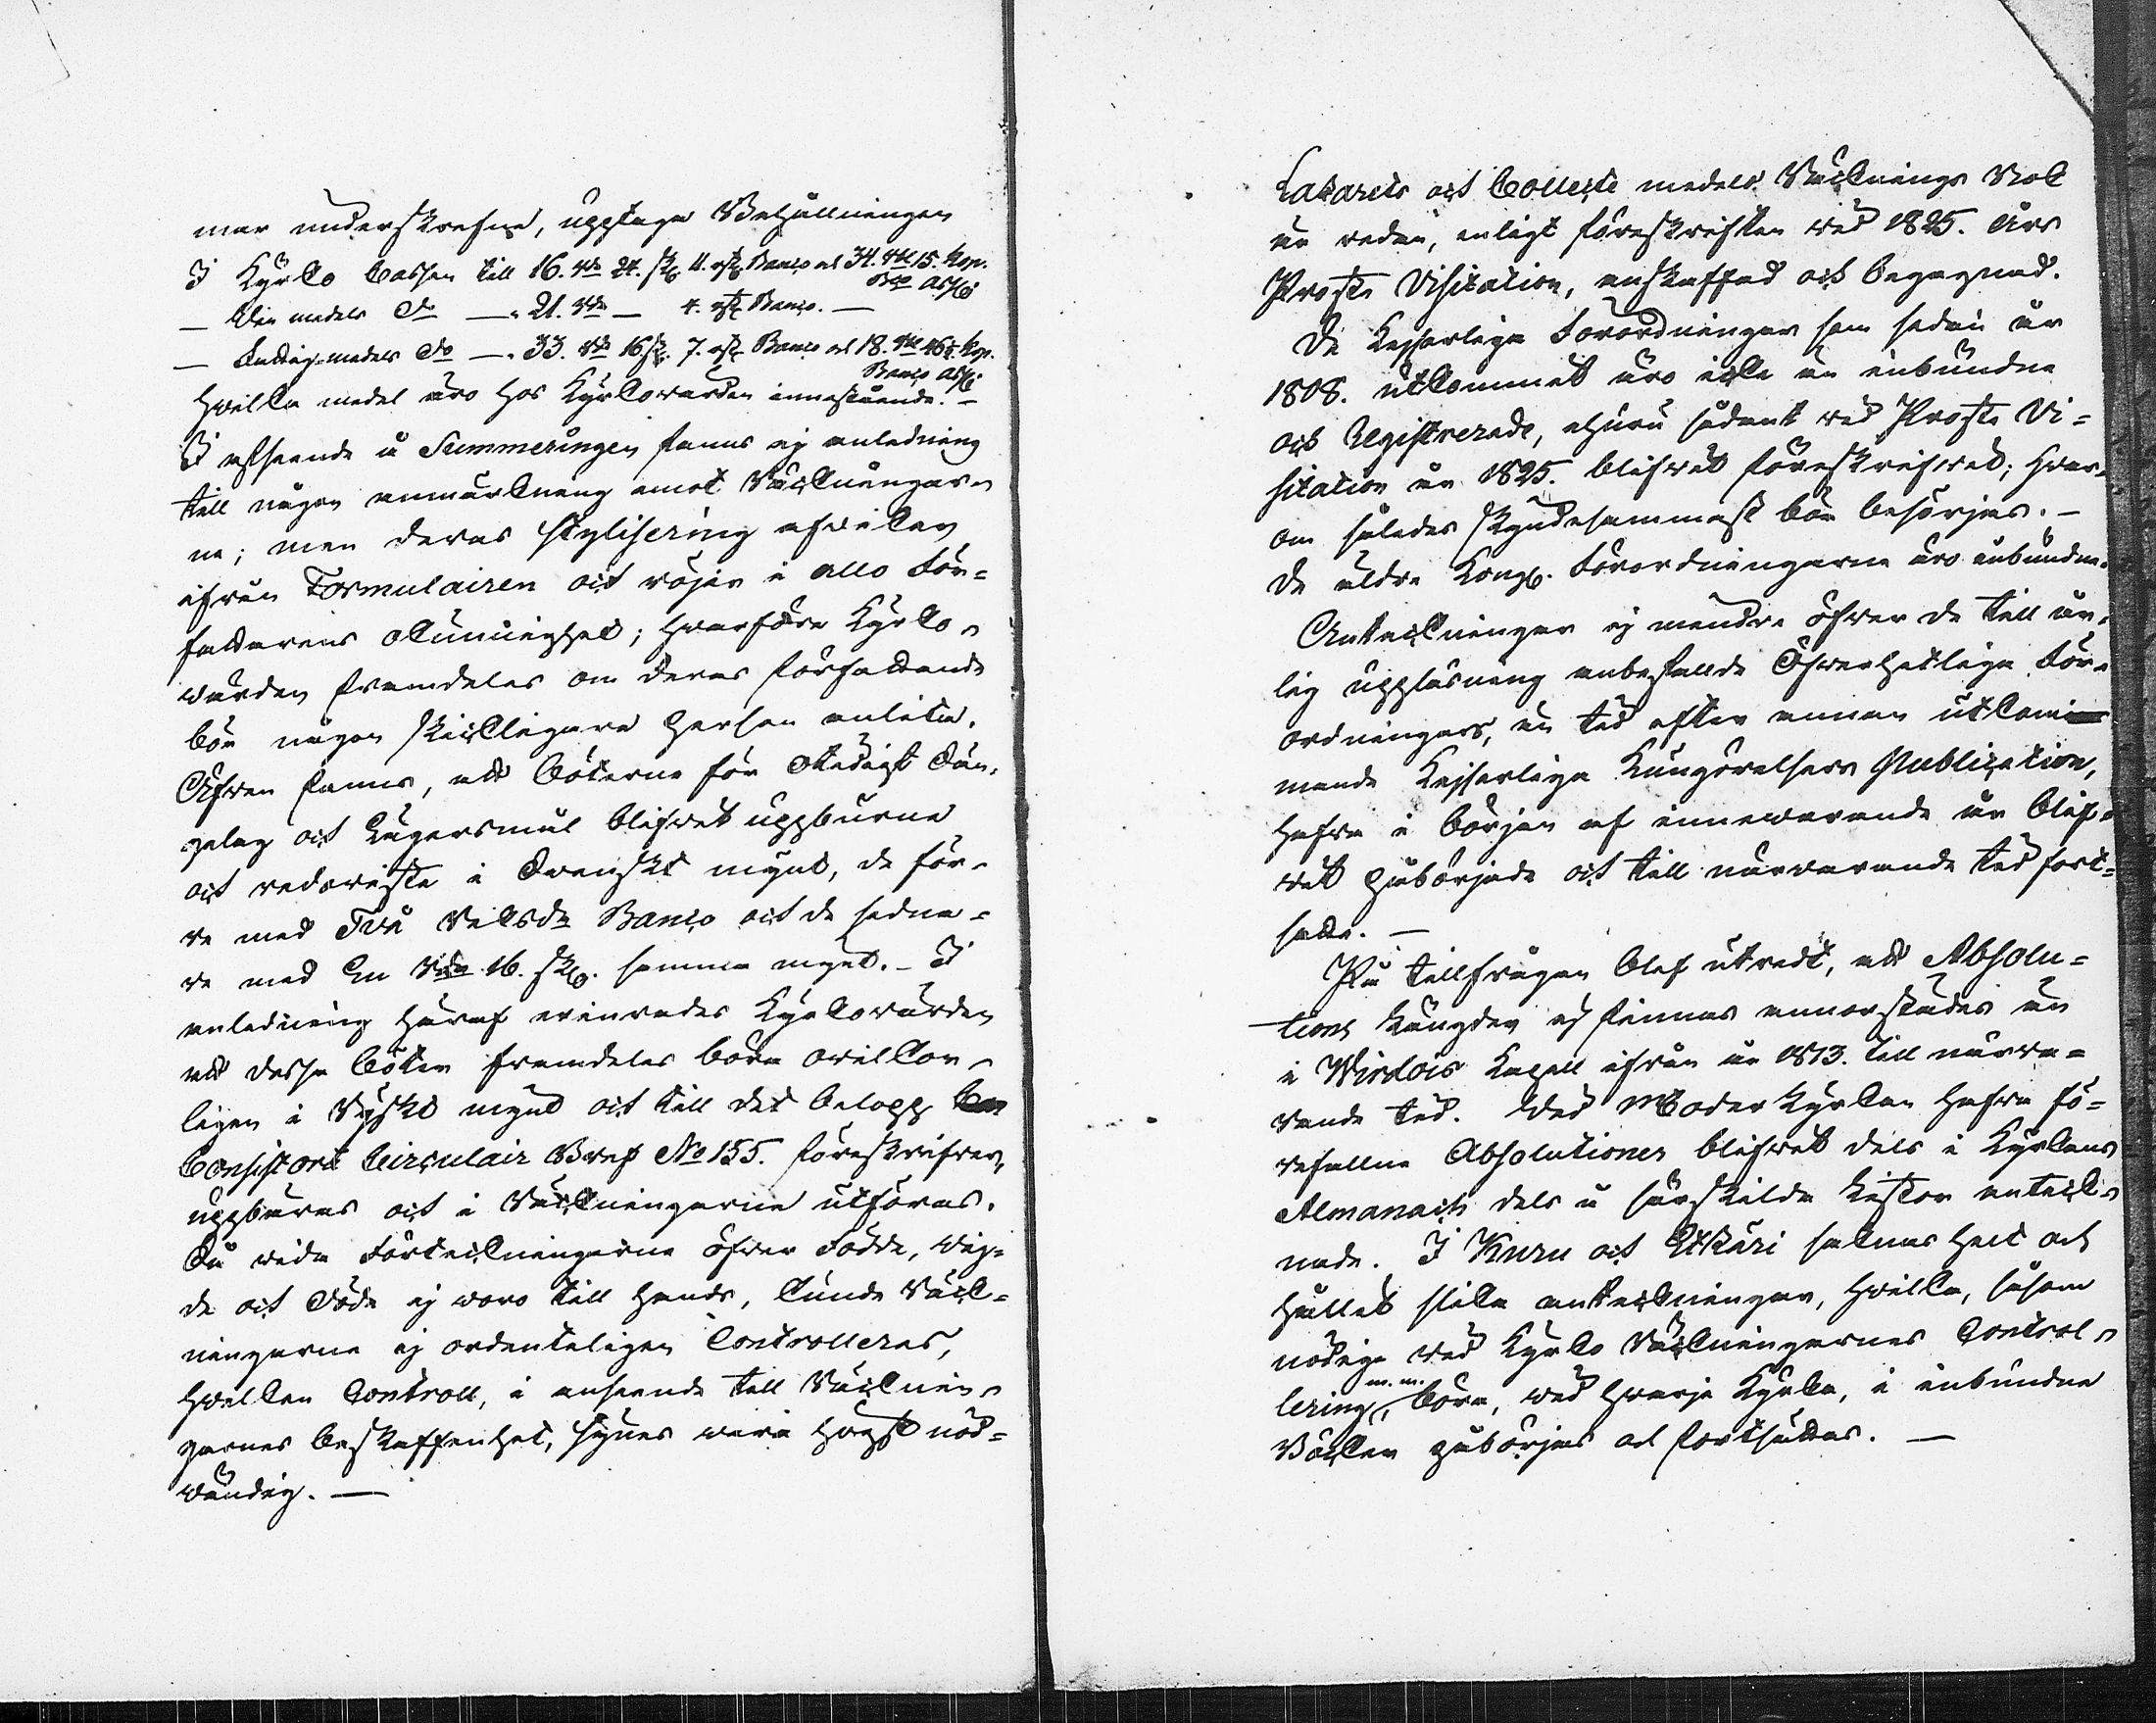 mar underskrefne, upptaga Behållningen
I Kyrko Cassan till 16. Rd 24. sk. 11. rst. Banco och 34. Rbl 15. Kop.
Bco Ass.
— Vin medels do —„ 21. Rd — 4. rst. Banco. —
— Fattig-medels do —„ 33. Rd 16 sk. 7. rst. Banco och 18. Rbl 46½ Kop.
Banco Ass.
Hwilka medel äro hos Kyrkowärden innestående. —
I afseende å Summeringen fanns ej anledning
till någon anmärkning emot Räkningar-
ne; men deras stylisering afwiker
ifrån Formulairen och röjer i allo För-
fattarens okunnighet; hwarföre Kyrko-
wärden framdeles om deras författande
bör någon skickligare person anlita.
Äfwen fanns, att böterne för otidigt Sän-
gelag och Lägersmål blifwit uppburne
och redowiste i Swenskt mynt, de för-
re med Två Riksdr Banco och de sedna-
re med En Rdr 16. sk. samma mynt. — I
anledning häraf erinrades Kyrkowärden
att dessa böter framdeles böra owilkor-
ligen i Ryskt mynt och till det belopp
Consistorii Circulair Bref No 155. föreskrifwer,
uppbäras och i Räkningarne utföras.
Då wida Förteckningarne öfwer Födde, Wig-
de och Döde ej woro till hands, kunde Räk-
ningarne ej ordenteligen Controlleras,
hwilken Controll, i anseende till Räknin-
garnes beskaffenhet, synes wara högst nöd-
wändig. —
Lazarets och Collecte medels Räknings Bok
är redan, enligt föreskriften wid 1825. Års
Prosts Visitation, anskaffad och begagnad.
De Kejserliga Förordningar som sedan år
1808. utkommit äro icke än inbundne
och Registrerade, ehuru sådant wid Prosts Vi-
sitation år 1825. blifwit föreskrifwet; hwar-
om således skyndesammast bör besörjas. —
De äldre Kongl. Förordningarne äro inbundne.
Anteckningar ej mindre öfwer de till år-
lig uppläsning anbefallde Öfwerhetliga För-
ordningars, än tid efter annan utkom-
mande Kejserliga Kungörelsers Publication,
hafwa i början af innewarande år blif-
wit påbörjade och till närwarande tid fort-
satte. —
På tillfrågan blef utredt, att Absolu-
tions Längder ej finnas annorstädes än
i Wirdois Kapell ifrån år 1813. till närwa-
rande tid. Wid Moder Kyrkan hafwa fö-
refallne Absolutioner blifwit dels i Kyrkans
Almanach dels å särskilda Listor anteck-
nade. I Kuru och Etkäri saknas helt och
hållet slika anteckningar, hwilka, såsom
nödige wid Kyrko Räkningarnes Control-
lering m. m. böra, wid hwarje Kyrka, i inbundne
Böcker påbörjas och fortsättas. —